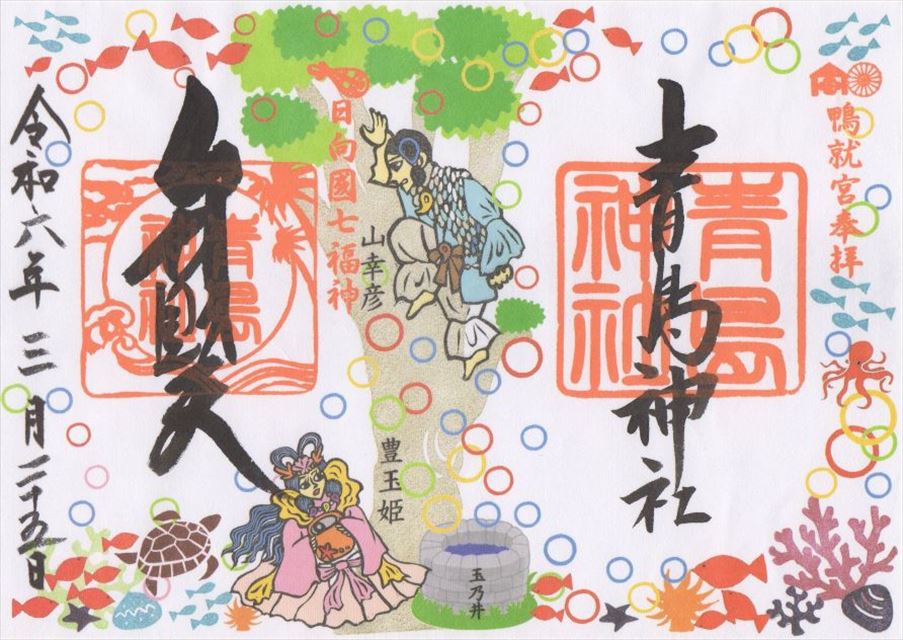 鴨就宮奉拝
青島神社
青島
神社
日向國七福神
山幸彦
豊玉姫
玉乃井
弁財天
青島
神社
令和六年三月二十五日